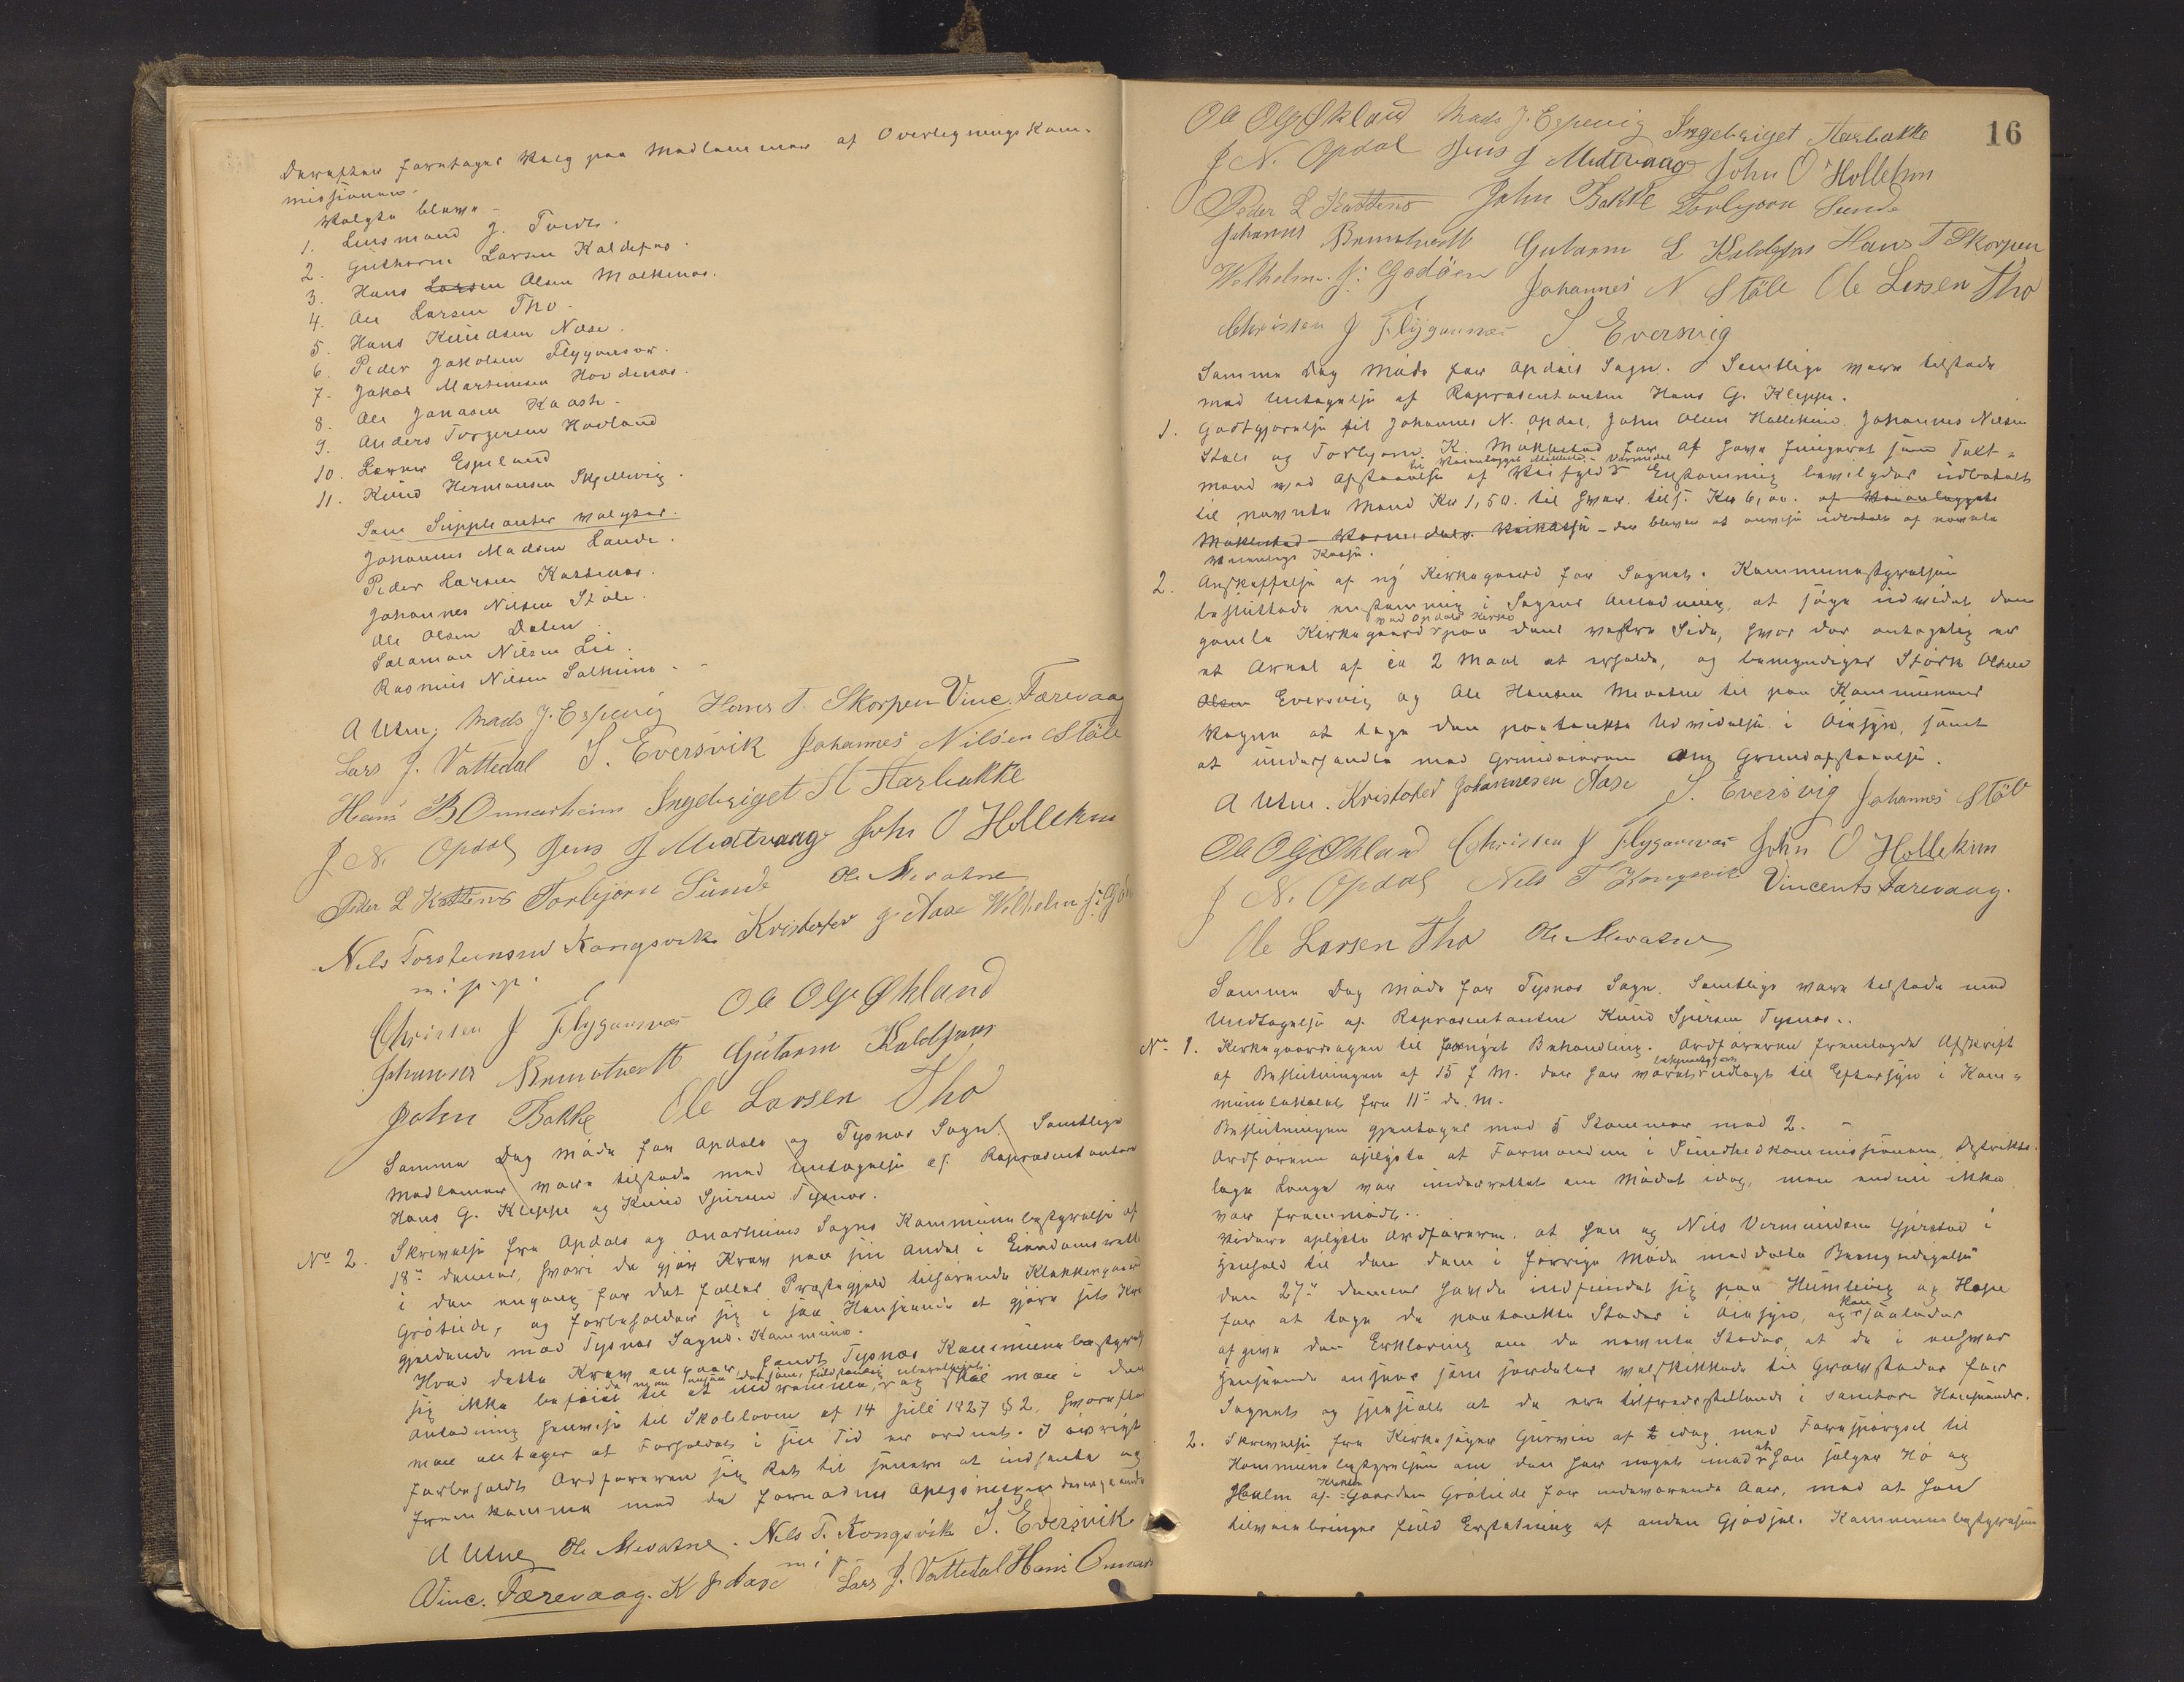 Derefter foretoges Valg paa Medlemmer af Overligningskom-
missionen.
Valgte bleve -
1. Lensmand J. Tvedt.
2. Guthorm Larsen Kaldefos.
3. Hans Larsen Olsen Malkenes.
4. Ole Larsen Tho.
5. Hans Knudsen Nese.
6. Peder Jakobsen Flygansvær.
7. Jakob Martinesen Hovdenes.
8. Ole Jonasen Kaaste.
9. Anders Torgersen Hovland
10. Espeland
11. Knud Hermansen Skjellevig.
Som Suppleanter valgtes.
Johannes Madsen Lande.
Peder Larsen Kattenes.
Johannes Nilsen Støle.
Ole Olsen Dalen
Salamon Nilsen Lie.
Rasmus Nilsen Solheim.
A Utne. Mads J. Espevig Hans T. Skorpen Vinc. Færevaag
Lars J. Vattedal S. Eversvik Johannes Nilsen Støle
Hans B Onnarheim Ingebrigt H Aarbakke
J N. Opdal Jens J Midtvaage John O Hollekim
Peder L Kattenes Torbjørn Sunde Ole Mevatne
Nils Torsteinsen Kongsvik Kristofer J. Aase Wilhelm J. Go
m. p. p.
Christen J Flygansvær Ole O. G. Økland
Johannes Brunstvedt Gutorm Kaldefoss
John Bakke Ole Larsen Tho
Samme Dag Møde for Opdals og Tysnes Sogn. Samtlige
Medlemmer vare tilstede med Undtagelse af Repræsentanten
Hans G. Kleppe og Knud Sjursen Tysnes.
No 2. Skrivelse fra Opdals og Onarheims Sogns Kommunebestyrelse af
18de dennes, hvori de gjør Krav paa sin Andel i Eiendomsrett
i den engang for det fælles Præstegjeld tilhørende Klokkergaard
Grøteide, og forbeholder sig i saa Henseende at gjøre sit Krav
gjældende mod Tysnes Sogns Kommune.
Hvad dette Krav angaar, fandt Tysnes Kommunebestyrelse
da man anser det som fuldstændig ubeføiet.
sig ikke beføiet til at indrømme, og skal man i den
Anledning henvise til Skoleloven af 14 Juli 1827 § 2, hvorefter
man antager at Forholdet i sin Tid er ordnet. I øvrigt
forbeholdt Ordføreren sig Ret til senere at indhente og
fremkomme med de fornødne Oplysninger desangaaende
A Utne Ole Mevatne. Nils T. Kongsvik S. Eversvik
m. p.
Vinc. Færevaag. K J Aase Lars J. Vattedal Hans Onnar
16
Ole O. G. Økland Mads J. Espevig Ingebrigt Aarbakke
J N. Opdal Jens J Midtvaage John O Hollekim
Peder L Kattenes John Bakke Torbjørn Sunde
Johannes Brunstvedt Gutorm L Kaldefos Hans T Skorpen
Wilhelm J. Godøen Johannes N Støle Ole Larsen Tho
Christen J Flygansvær S Eversvig
Samme Dag Møde for Opdals Sogn. Samtlige vare tilstede
med Undtagelse af Repræsentanten Hans G. Kleppe.
1. Godtgjørelse til Johannes N. Opdal, John Olsen Hollekim, Johannes Nilsen
Støle og Torbjørn K. Møklestad for at have fungeret som Takst-
til Veianlægget Møklestad - Vermedal
mænd ved Afstaaelse af Veifyld Enstemmig bevilgedes udbetalt
til nævnte Mænd Kr 1,50. til hver. tils. Kr 6,00. af Veianlægget
Møklestad - Vermedals Veikasse - der bliver at anvise udbetalt af nævnte
Veianlægs Kasse.
2. Anskaffelse af ny Kirkegaard for Sognet. Kommunestyrelsen
besluttede enstemmig i Sagens Anledning, at søge udvidet den
ved Opdals Kirke
gamle Kirkegaard paa dens vestre Side, hvor der antagelig er
et Areal af ca 2 Maal at erholde, og bemyndiges Størk Olsen
Olsen Eversvig og Ole Hansen Mevatne til paa Kommunens
Vegne at tage den paatænkte Udvidelse i Øiesyn, samt
at underhandle med Grundeieren om Grundafstaaelse.
A Utne. Kristofer Johannesen Aase S. Eversvig Johannes Støle
Ole O G Økland Christen J Flygansvær John O Hollekim
J N. Opdal Nils T Kongsvik Vincents Færevaag.
Ole Larsen Tho Ole Mevatne
Samme Dag Møde for Tysnes Sogn. Samtlige vare tilstede med
Undtagelse af Repræsentanten Knud Sjursen Tysnes..
No 1. Kirkegaardsagen til fornyet Behandling. Ordføreren fremlagde Afskrift
bekjendtgjort
af Beslutningen af 15 f. M. der har været udlagt til Eftersyn i Kom-
munelokalet fra 11te ds. M.
Beslutningen gjentages med 5 Stemmer mod 2. -
Ordføreren oplyste at Formanden i Sundhedskommissionen, Distrikts-
læge Lange var underrettet om Mødet idag, men endnu ikke
var fremmødt..
Videre oplyste Ordføreren, at han og Nils Vermundsen Gjerstad i
Henhold til den dem i forrige Møde meddelte Bemyndigelse
den 27de dennes havde indfundet sig paa Humlevig og Hope
for at tage de paatænkte Steder i Øiesyn, og kan saaledes
afgive den Erklæring om de nævnte Steder, at de i enhver
Henseende ansees som særdeles velskikkede til Gravsteder for
Sognet og specielt at de ere tilfredsstillende i sanitær Henseende.
2. Skrivelse fra Kirkesanger Gurvin af idag med Forespørgsel til
Kommunebestyrelsen om den har noget mod at han sælger Hø og
Halm af Gaarden Grøteide for indeværende Aar, mod at han
tilveiebringer fuld Erstatning af anden Gjødsel. Kommunebestyrelsen